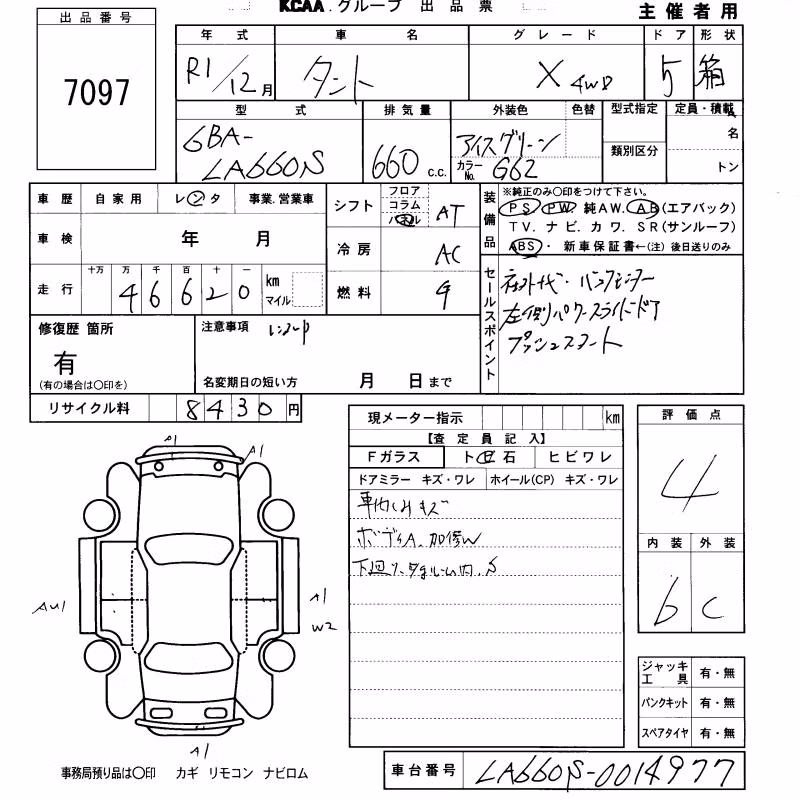 KCAA.グループ 出品票 主催者用
出品番号
7097
年式 車名 グレード ドア 形状
R1/12月 タント X 4WD 5 箱
型式 排気量 外装色 色替 型式指定 定員・積載
6BA-LA660S 660 c.c. アイスグリーン 名
カラーNo. G62 類別区分 トン
車歴 自家用 レンタ 事業.営業車
車検 年 月
走行 十万 万 千 百 十 一
4 6 6 2 0 km マイル
シフト フロア コラム パネル AT
冷房 AC
燃料
装備品 ※純正のみ○印をつけて下さい。
PS PW. 純AW. AB(エアバック)
TV. ナビ. カワ. SR(サンルーフ)
ABS・新車保証書←(注)後日送りのみ
セールスポイント
左側パワースライドドア
プッシュスタート
修復歴 箇所
有
(有の場合は○印を)
注意事項
名変期日の短い方 月 日まで
リサイクル料 8430円
現メーター指示 km
【査定員記入】
Fガラス トビ石 ヒビワレ
ドアミラー キズ・ワレ ホイール(CP) キズ・ワレ
車内しみキズ
ボディA. 加修W
下廻り、タイヤルーム内.S
評価点
4
内装 外装
b C
ジャッキ工具 有・無
パンクキット 有・無
スペアタイヤ 有・無
A1
A1
AU1
A1
W2
A1
事務局預り品は○印 カギ リモコン ナビロム
車台番号 LA660S-0014977